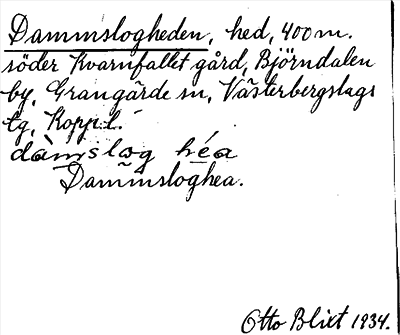 Dammslogheden, hed, 400 m.
söder Kvarnfallet gård, Björndalen
by, Grangärde sn, Västerbergslags
tg, Kopp.l.
dàm̄slog héa
Dammsloghea.
Otto Blixt 1934.